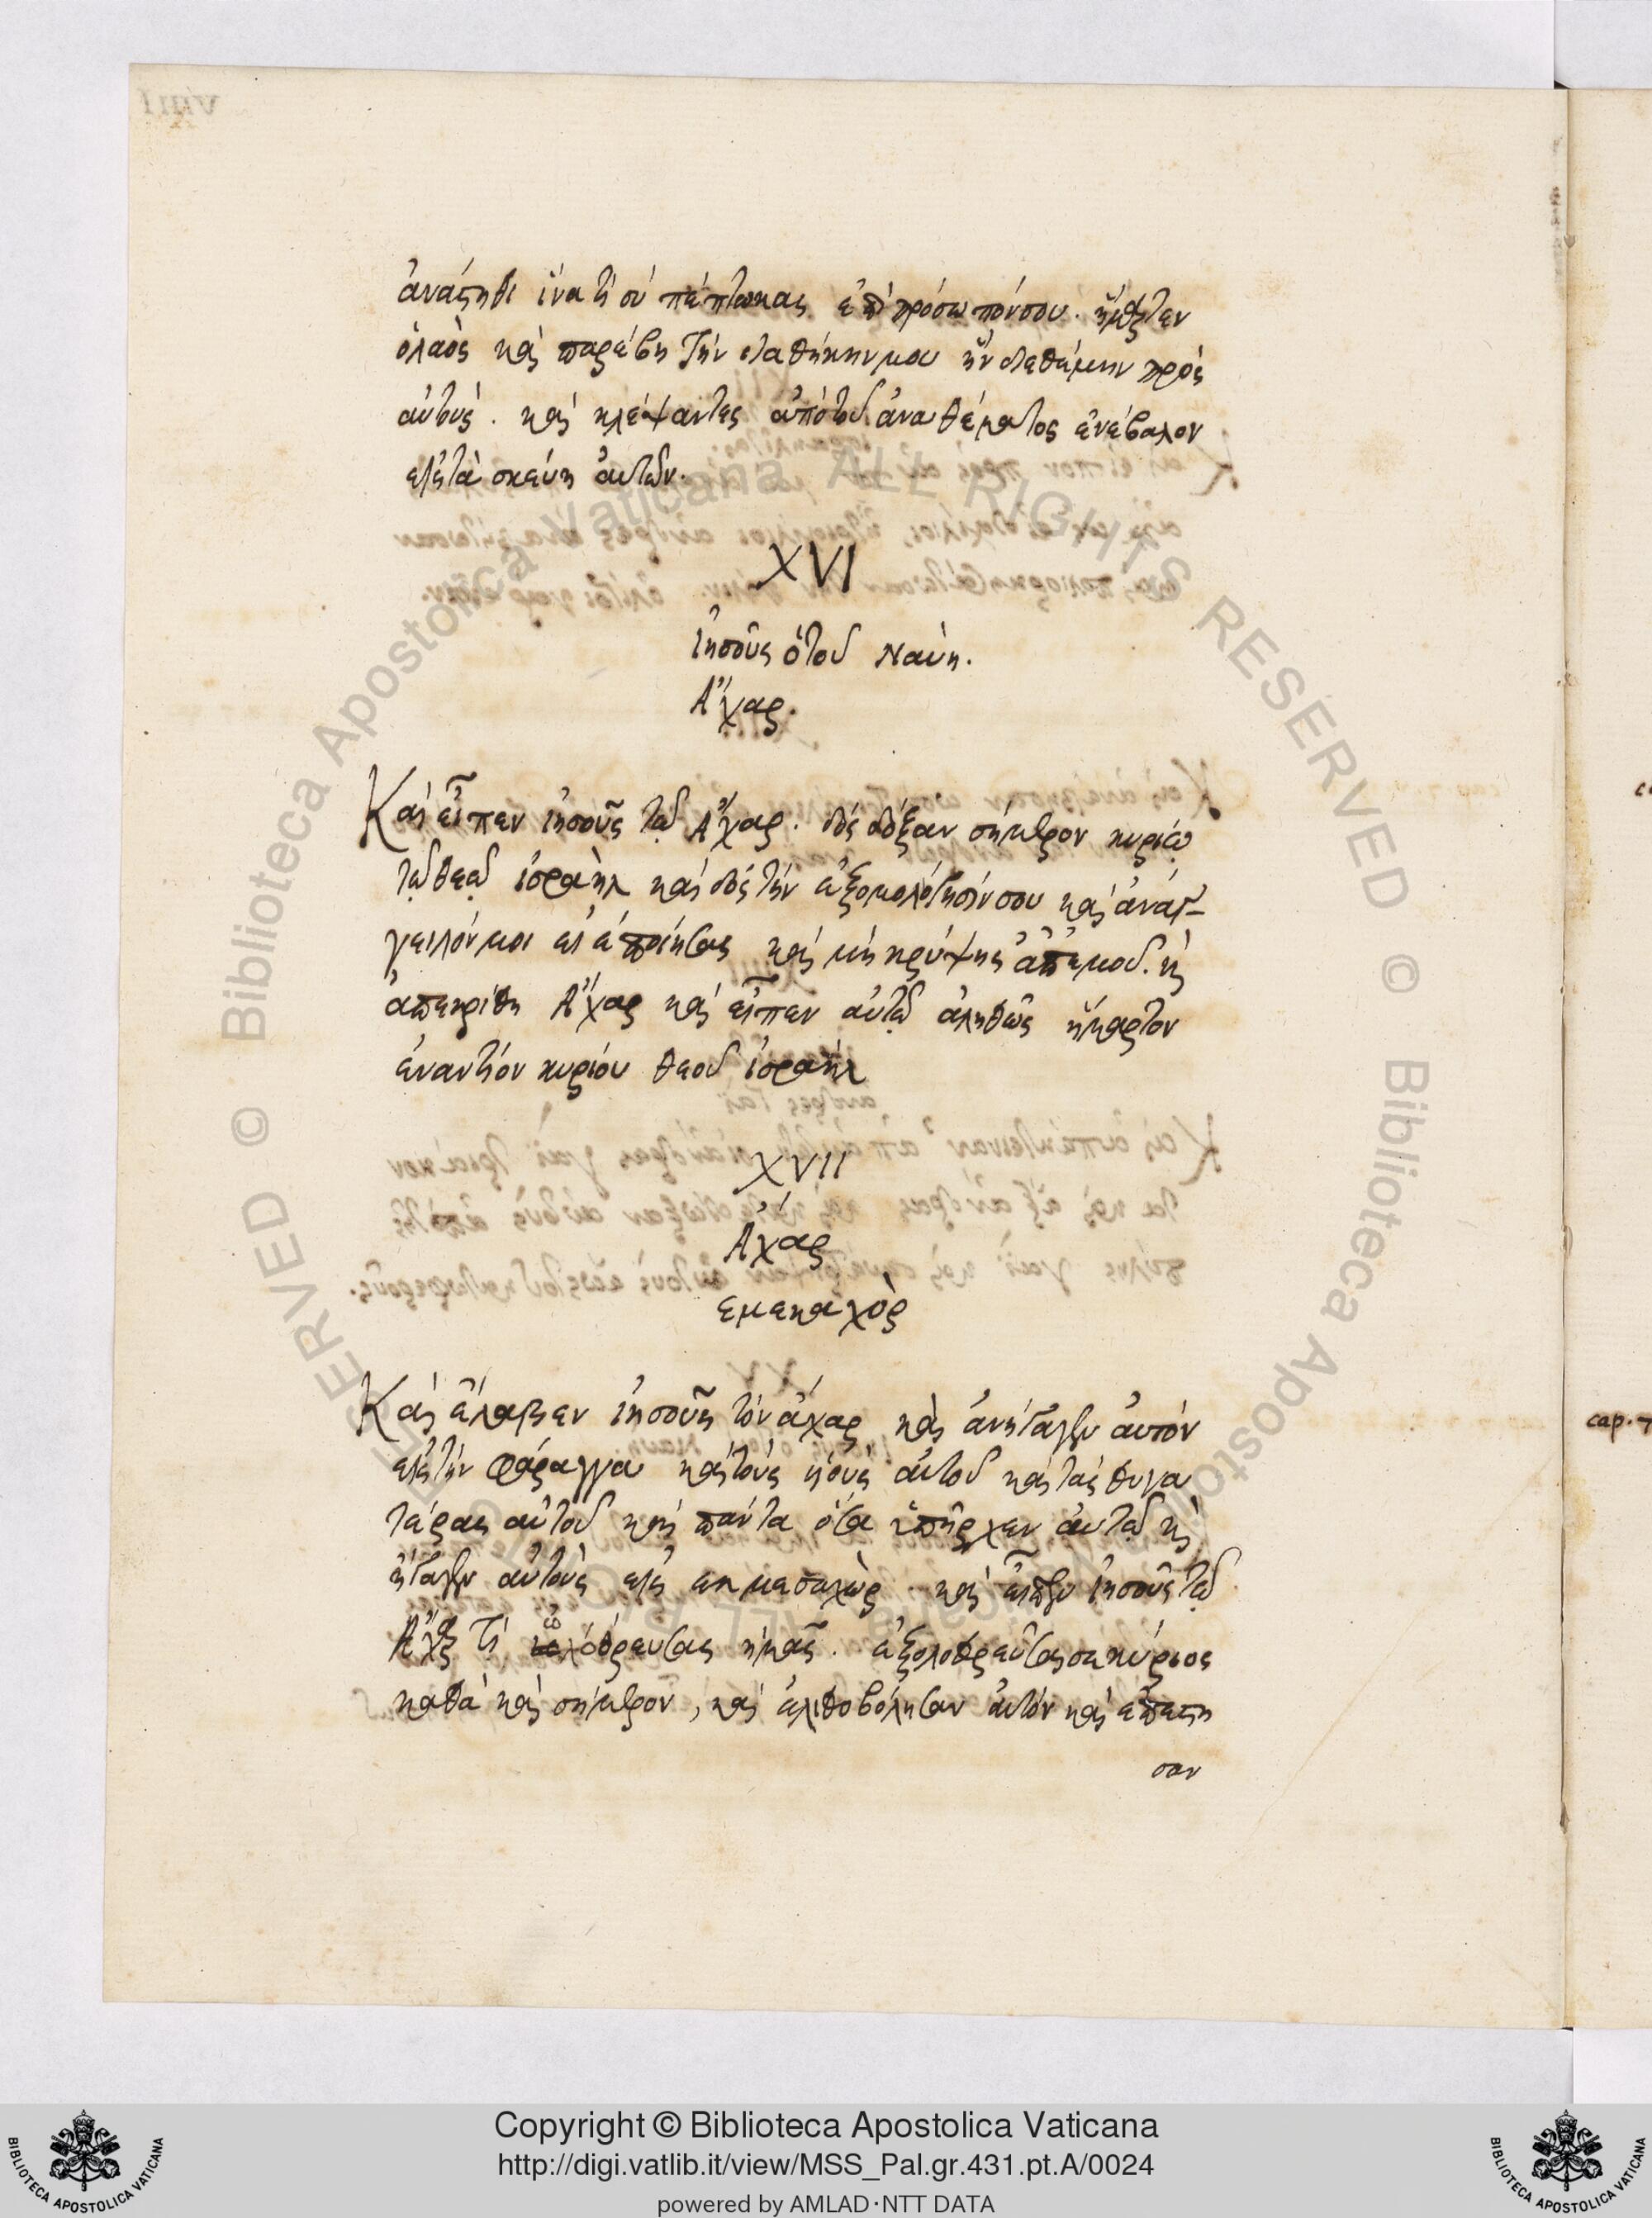 ἀνάστηθι ἵνα τί σύ πέπτωκας ἐπὶ πρόσωπόνσου. ἥμαρτεν
ὁλαὸς καὶ παρέβη τὴν διαθήκηνμου ἣν διεθέμην πρὸς
αὐτούς. καὶ κλέψαντες ἀπὸτοῦ ἀναθέματος ἐνέβαλον
εἰςτὰ σκεύη ἀυτῶν.
XVI
ἰησοῦς ὁτοῦ Ναύη.
Ἄχαρ.
Καὶ εἶπεν ἰησοῦς τῷ Ἄχαρ. δὸς δόξαν σήμερον κυρίῳ
τῷ θεῷ ἰσραὴλ καὶ δὸς τὴν ἐξομολόγησίν σου καὶ ἀνάγ-
γειλόν μοι εἰ ἐποίησας καὶ μὴ κρύψης ἀπ' ἐμοῦ. κὶ
ἀπεκρίθη Ἄχαρ καὶ εἶπεν αὐτῷ ἀληθῶς ἥμαρτον
ἐναντίον κυρίου θεοῦ ἰσραήλ
XVII
Ἄχαρ
εμεκαχὸρ
Καὶ ἔλαβεν ἰησοῦς τὸν ἄχαρ καὶ ἀνήγαγεν ἀυτόν
εἰςτὴν φάραγγα καὶτοὺς ἡοὺς ἀυτοῦ καὶτὰς θυγα
τέρας αὐτοῦ καὶ πάντα ὅσα ὑπῆρχεν ἀυτῷ κὶ
ἤγαγεν αὐτοὺς εἰς καὶ εἶπεν ἰησοῦς τῷ
Ἄχαρ τί ὠλόθρευσας ἡμᾶς. ἐξολοθρεῦσαισε κύριος
καθὰ καὶ σήμερον, καὶ ἐλιθοβόλησαν ἀυτόν καὶ ἐπέστη
σαν
cap. 7
Copyright © Biblioteca Apostolica Vaticana
http://digi.vatlib.it/view/MSS_Pal.gr.431.pt.A/0024
powered by AMLAD·NTT DATA
BIBLIOTECA APOSTOLICA VATICANA
BIBLIOTECA APOSTOLICA VATICANA